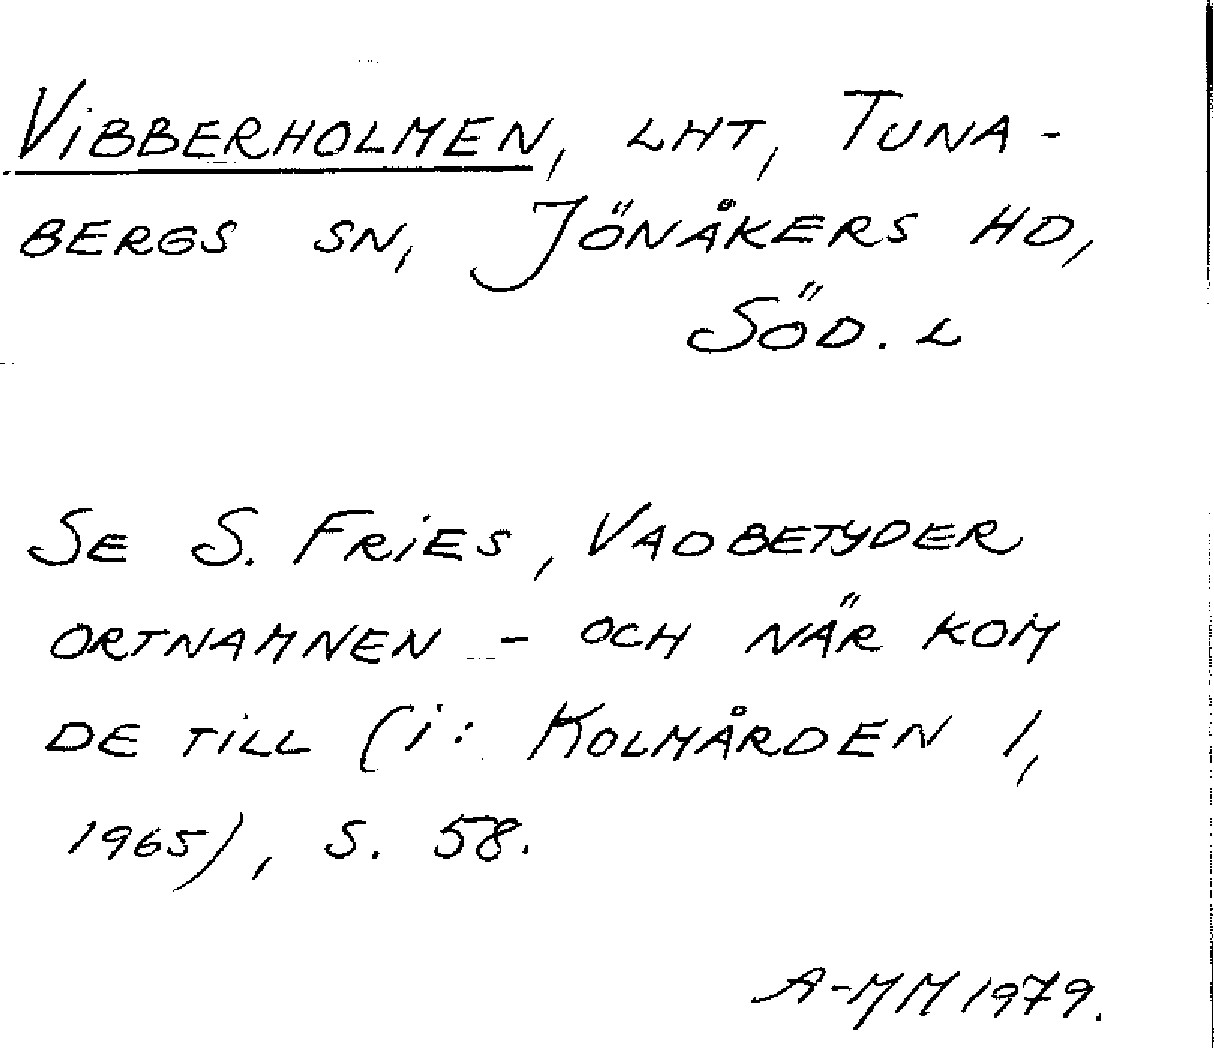 VIBBERHOLMEN, LHT, TUNA-
BERGS SN, JÖNÅKERS HD,
SÖD. L
SE S. FRIES, VAD BETYDER
ORTNAMNEN - OCH NÄR KOM
DE TILL (i: KOLMÅRDEN 1,
1965), S. 58.
A-MM 1979.